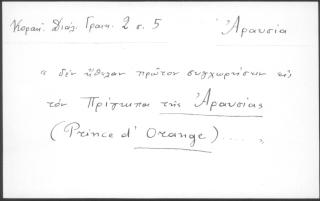 Κοραή. Διάλ. Γραικ. 2 σ. 5 Ἀραυσία
« δὲν ἤθελαν πρῶτον συγχωρήσειν εἰς
τὸν Πρίγκιπα τῆς Ἀραυσίας
(Prince d' Orange) .... »